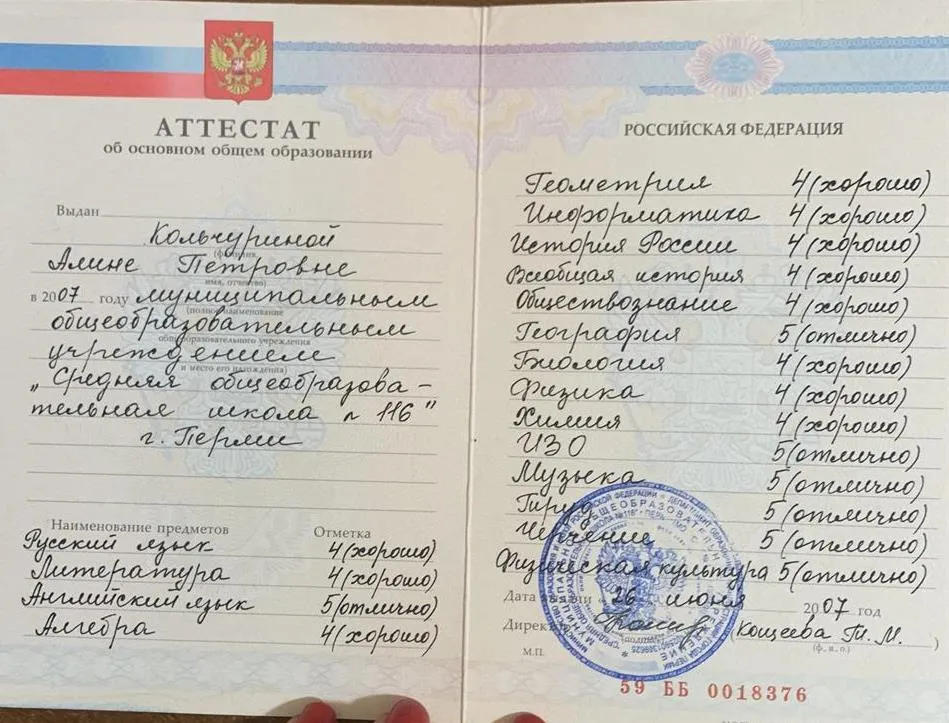 АТТЕСТАТ
об основном общем образовании
Выдан
Кольчуриной
(фамилия,
Алине Петровне
имя, отчество)
в 2007 году муниципальным
(полное наименование
общеобразовательным
общеобразовательного учреждения
учреждением
и место его нахождения)
„Средняя общеобразова-
тельная школа n 116"
г. Перми
Наименование предметов Отметка
Русский язык 4(хорошо)
Литература 4(хорошо)
Английский язык 5(отлично)
Алгебра 4(хорошо)
РОССИЙСКАЯ ФЕДЕРАЦИЯ
Геометрия 4(хорошо)
Информатика 4(хорошо)
История России 4(хорошо)
Всеобщая история 4(хорошо)
Обществознание 4(хорошо)
География 5(отлично)
Биология 4(хорошо)
Физика 4(хорошо)
Химия 4(хорошо)
ИЗО 5(отлично)
Музыка 5(отлично)
Труд 5(отлично)
Черчение 5(отлично)
Физическая культура 5(отлично)
Дата выдачи „26 июня 2007 год
Директор (Кощеева Т. М. )
(подпись) (ф., и., о.)
М.П.
59 ББ 0018376